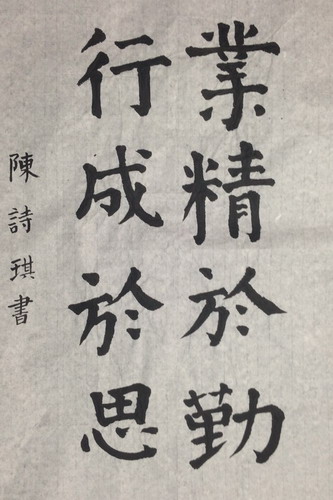 業精於勤
行成於思
陳詩琪書